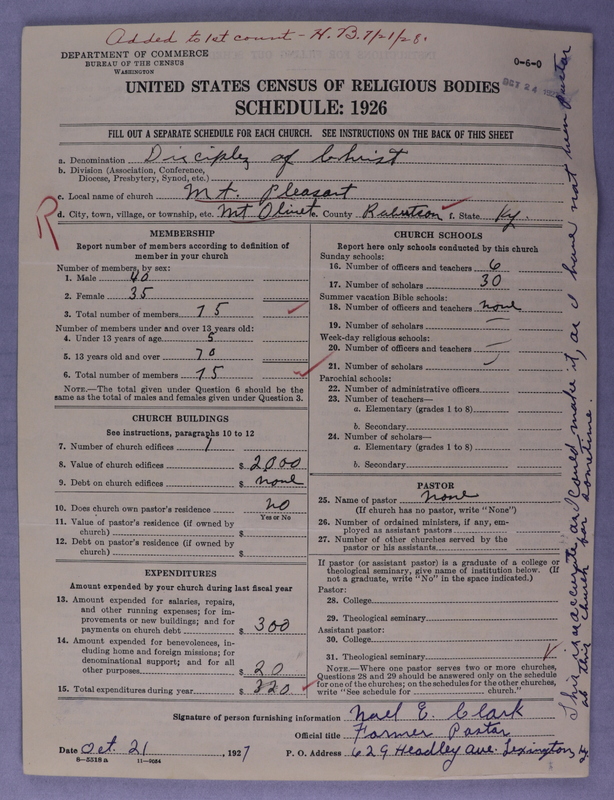 Added to 1st count - H. B. 7/21/28.
DEPARTMENT OF COMMERCE
BUREAU OF THE CENSUS
WASHINGTON
0-6-0
OCT 24
UNITED STATES CENSUS OF RELIGIOUS BODIES
SCHEDULE: 1926
FILL OUT A SEPARATE SCHEDULE FOR EACH CHURCH. SEE INSTRUCTIONS ON THE BACK OF THIS SHEET
a. Denomination Disciples of Christ
b. Division (Association, Conference,
Diocese, Presbytery, Synod, etc.)
c. Local name of church Mt. Pleasant
d. City, town, village, or township, etc. Mt Olivet e. County Robertson f. State Ky.
R
MEMBERSHIP
Report number of members according to definition of
member in your church
Number of members, by sex:
1. Male 40
2. Female 35
3. Total number of members 75
Number of members under and over 13 years old:
4. Under 13 years of age 5
5. 13 years old and over 70
6. Total number of members 75
NOTE.—The total given under Question 6 should be the
same as the total of males and females given under Question 3.
CHURCH BUILDINGS
See instructions, paragraphs 10 to 12
7. Number of church edifices 1
8. Value of church edifices $ 2000
9. Debt on church edifices $ none
10. Does church own pastor's residence no
Yes or No
11. Value of pastor's residence (if owned by
church) $
12. Debt on pastor's residence (if owned by
church) $
EXPENDITURES
Amount expended by your church during last fiscal year
13. Amount expended for salaries, repairs,
and other running expenses; for im-
provements or new buildings; and for
payments on church debt $ 300
14. Amount expended for benevolences, in-
cluding home and foreign missions; for
denominational support; and for all
other purposes $ 20
15. Total expenditures during year $ 320
CHURCH SCHOOLS
Report here only schools conducted by this church
Sunday schools:
16. Number of officers and teachers 6
17. Number of scholars 30
Summer vacation Bible schools:
18. Number of officers and teachers none
19. Number of scholars
Week-day religious schools:
20. Number of officers and teachers
21. Number of scholars
Parochial schools:
22. Number of administrative officers
23. Number of teachers—
a. Elementary (grades 1 to 8)
b. Secondary
24. Number of scholars—
a. Elementary (grades 1 to 8)
b. Secondary
PASTOR
25. Name of pastor none
(If church has no pastor, write "None")
26. Number of ordained ministers, if any, em-
ployed as assistant pastors
27. Number of other churches served by the
pastor or his assistants
If pastor (or assistant pastor) is a graduate of a college or
theological seminary, give name of institution below. (If
not a graduate, write "No" in the space indicated.)
Pastor:
28. College
29. Theological seminary
Assistant pastor:
30. College
31. Theological seminary
NOTE.—Where one pastor serves two or more churches,
Questions 28 and 29 should be answered only on the schedule
for one of the churches; on the schedules for the other churches,
write "See schedule for church."
Signature of person furnishing information Noel E. Clark
Official title Former Pastor
Date Oct. 21, 1927 P. O. Address 629 Headley Ave. Lexington, Ky.
8—5318 a 11—9054
This is as accurate as I could make it, as I have not been pastor
at this church for sometime.